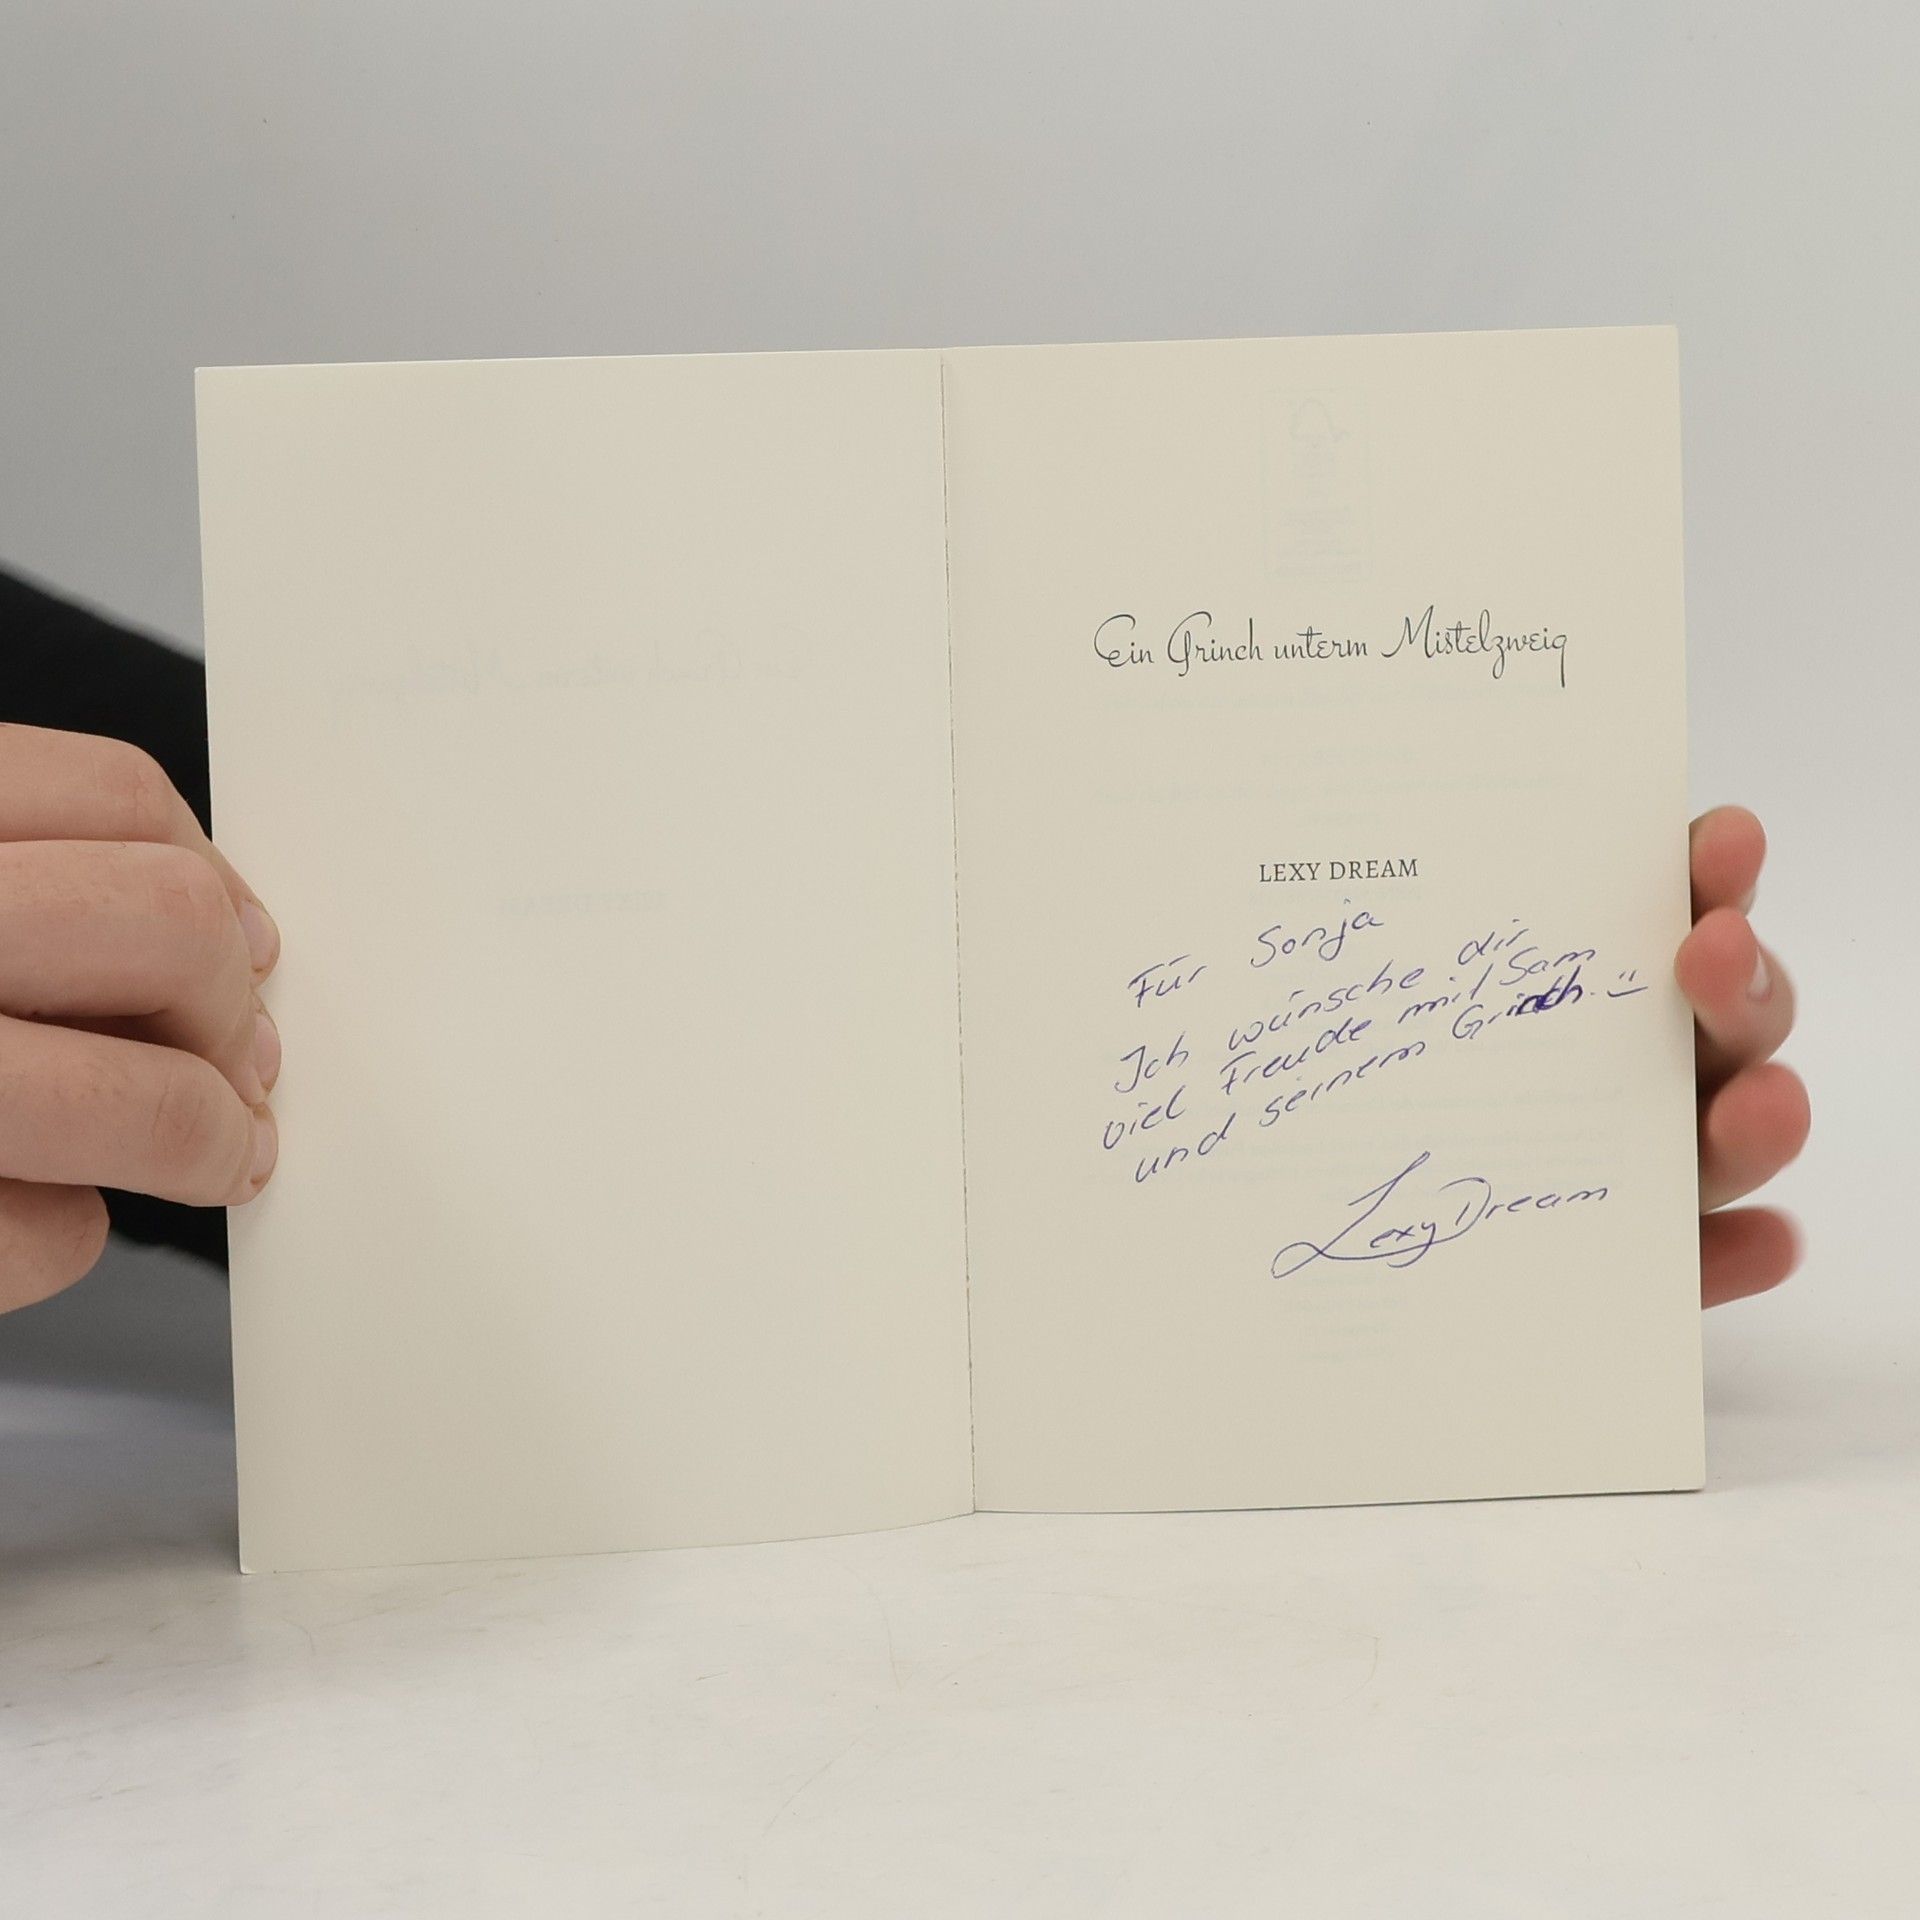 Ein Grinch unterm Mistelzweig
LEXY DREAM
Für Sonja
Ich wünsche dir
viel Freude mit Sam
und seinem Grinch. :)
Lexy Dream